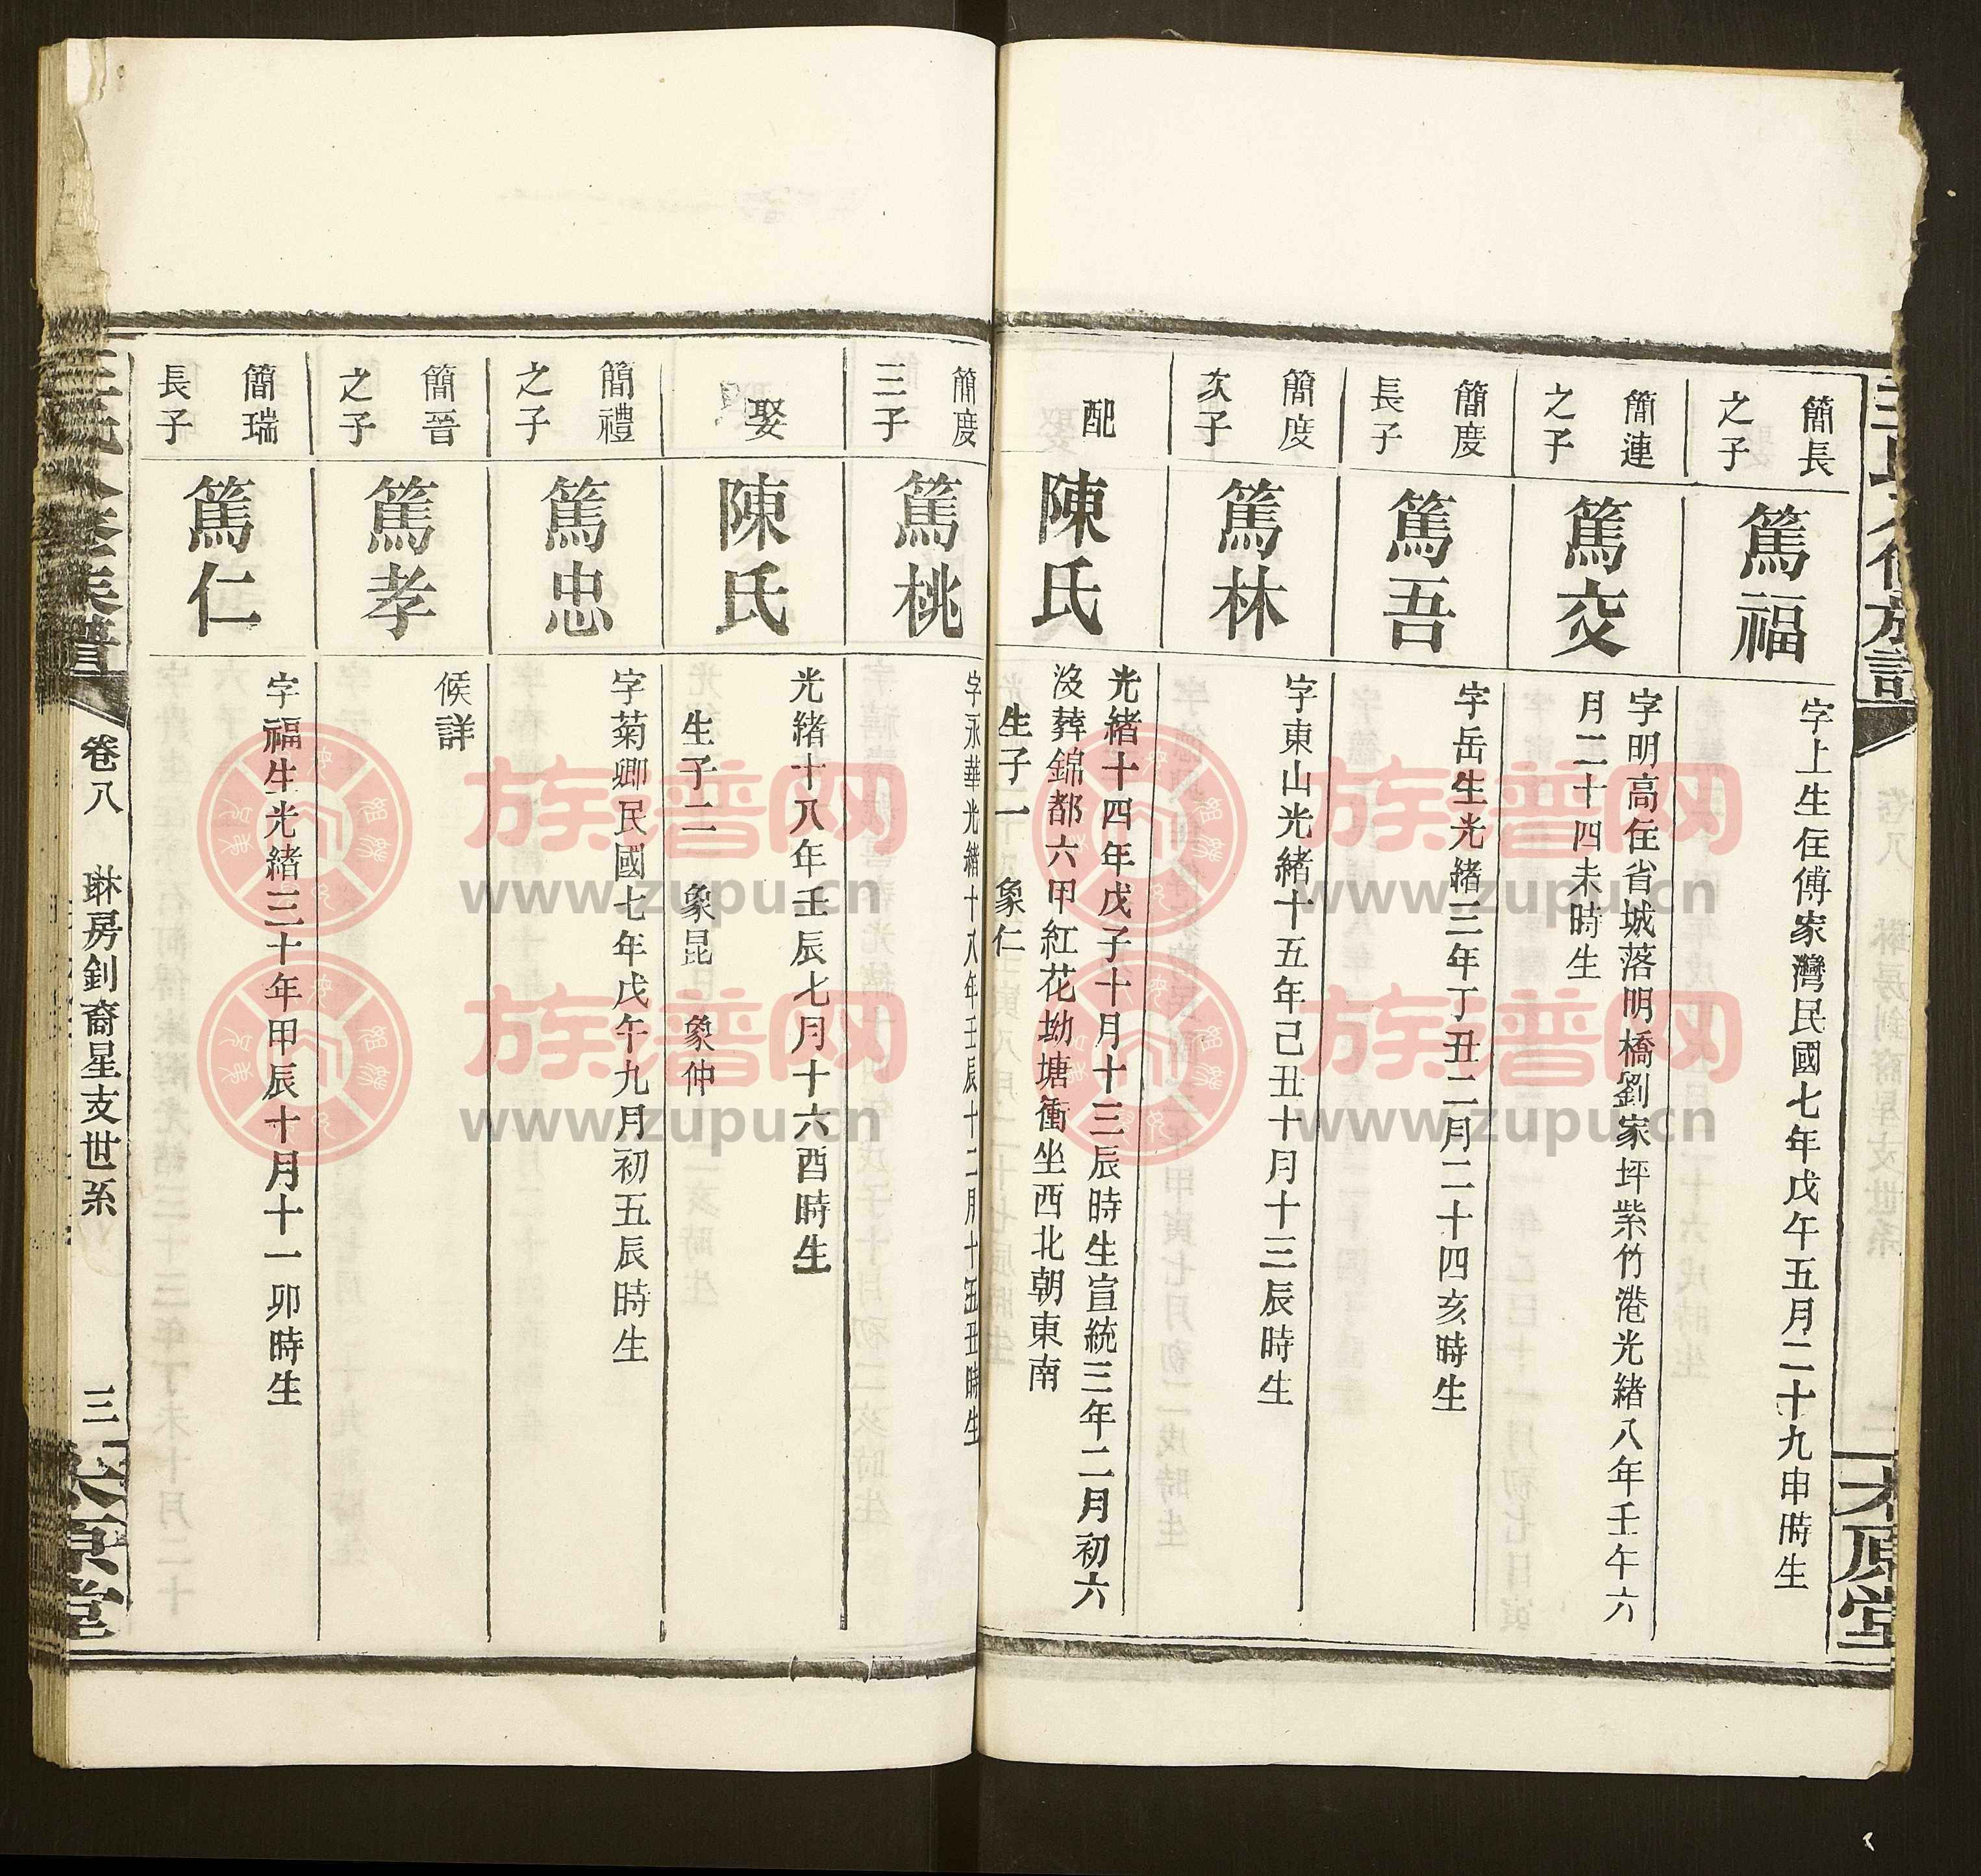 簡長
之子
篤福
字上生住傅家灣民國七年戊午五月二十九申時生
簡連
之子
篤交
字明高住省城落明橋劉家坪紫竹港光緒八年壬午六
月二十四未時生
簡度
長子
篤吾
字岳生光緒三年丁丑二月二十四亥時生
簡度
次子
篤林
字東山光緒十五年己丑十月十三辰時生
配
陳氏
光緒十四年戊子十月十三辰時生宣統三年二月初六
沒葬錦都六甲紅花坳塘衝坐西北朝東南
生子一 象仁
簡度
三子
篤桃
字永華光緒十八年壬辰十二月十五丑時生
娶
陳氏
光緒十八年壬辰七月十六酉時生
生子二 象昆 象仲
簡禮
之子
篤忠
字菊卿民國七年戊午九月初五辰時生
簡晉
之子
篤孝
候詳
簡瑞
長子
篤仁
字福生光緒三十年甲辰十月十一卯時生
卷八 琳房釗裔星支世系 三
族譜網
www.zupu.cn
族譜網
www.zupu.cn
族譜網
www.zupu.cn
族譜網
www.zupu.cn